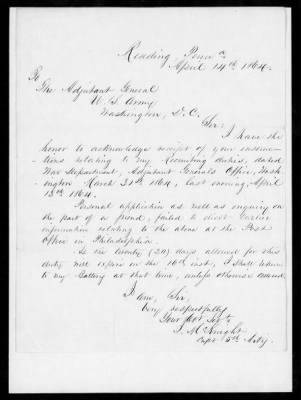 Reading Penn a
April 14th 1864.
To
The Adjutant General
U. S. Army
Washington, D. C.
Sir:
I have the
honor to acknowledge receipt of your instruc-
-tions relating to my Recruiting duties, dated
War Department, Adjutant General's Office, Wash-
-ington March 31st 1864, last evening, April
13th 1864.
Personal application as well as inquiry on
the part of a friend, failed to elicit earlier
information relating to the above at the Post
Office in Philadelphia.
As the twenty (20) days allowed for this
duty will expire on the 16th inst, I shall return
to my Battery at that time, unless otherwise ordered.
I am, Sir,
Very respectfully
Your Obt Servt
J. McKnight
Capt 5th Arty.